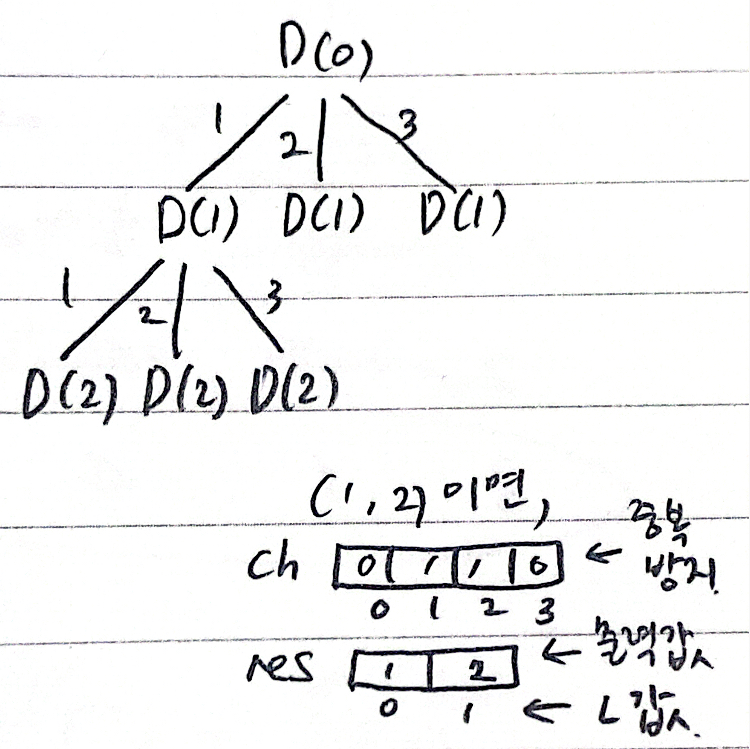 D(0)
1 2 3
D(1) D(1) D(1)
1 2 3
D(2) D(2) D(2)
(1, 2) 이면,
중복
ch 0 1 1 0 ← 방지.
0 1 2 3
res 1 2 ← 출력값
0 1 ← L값.